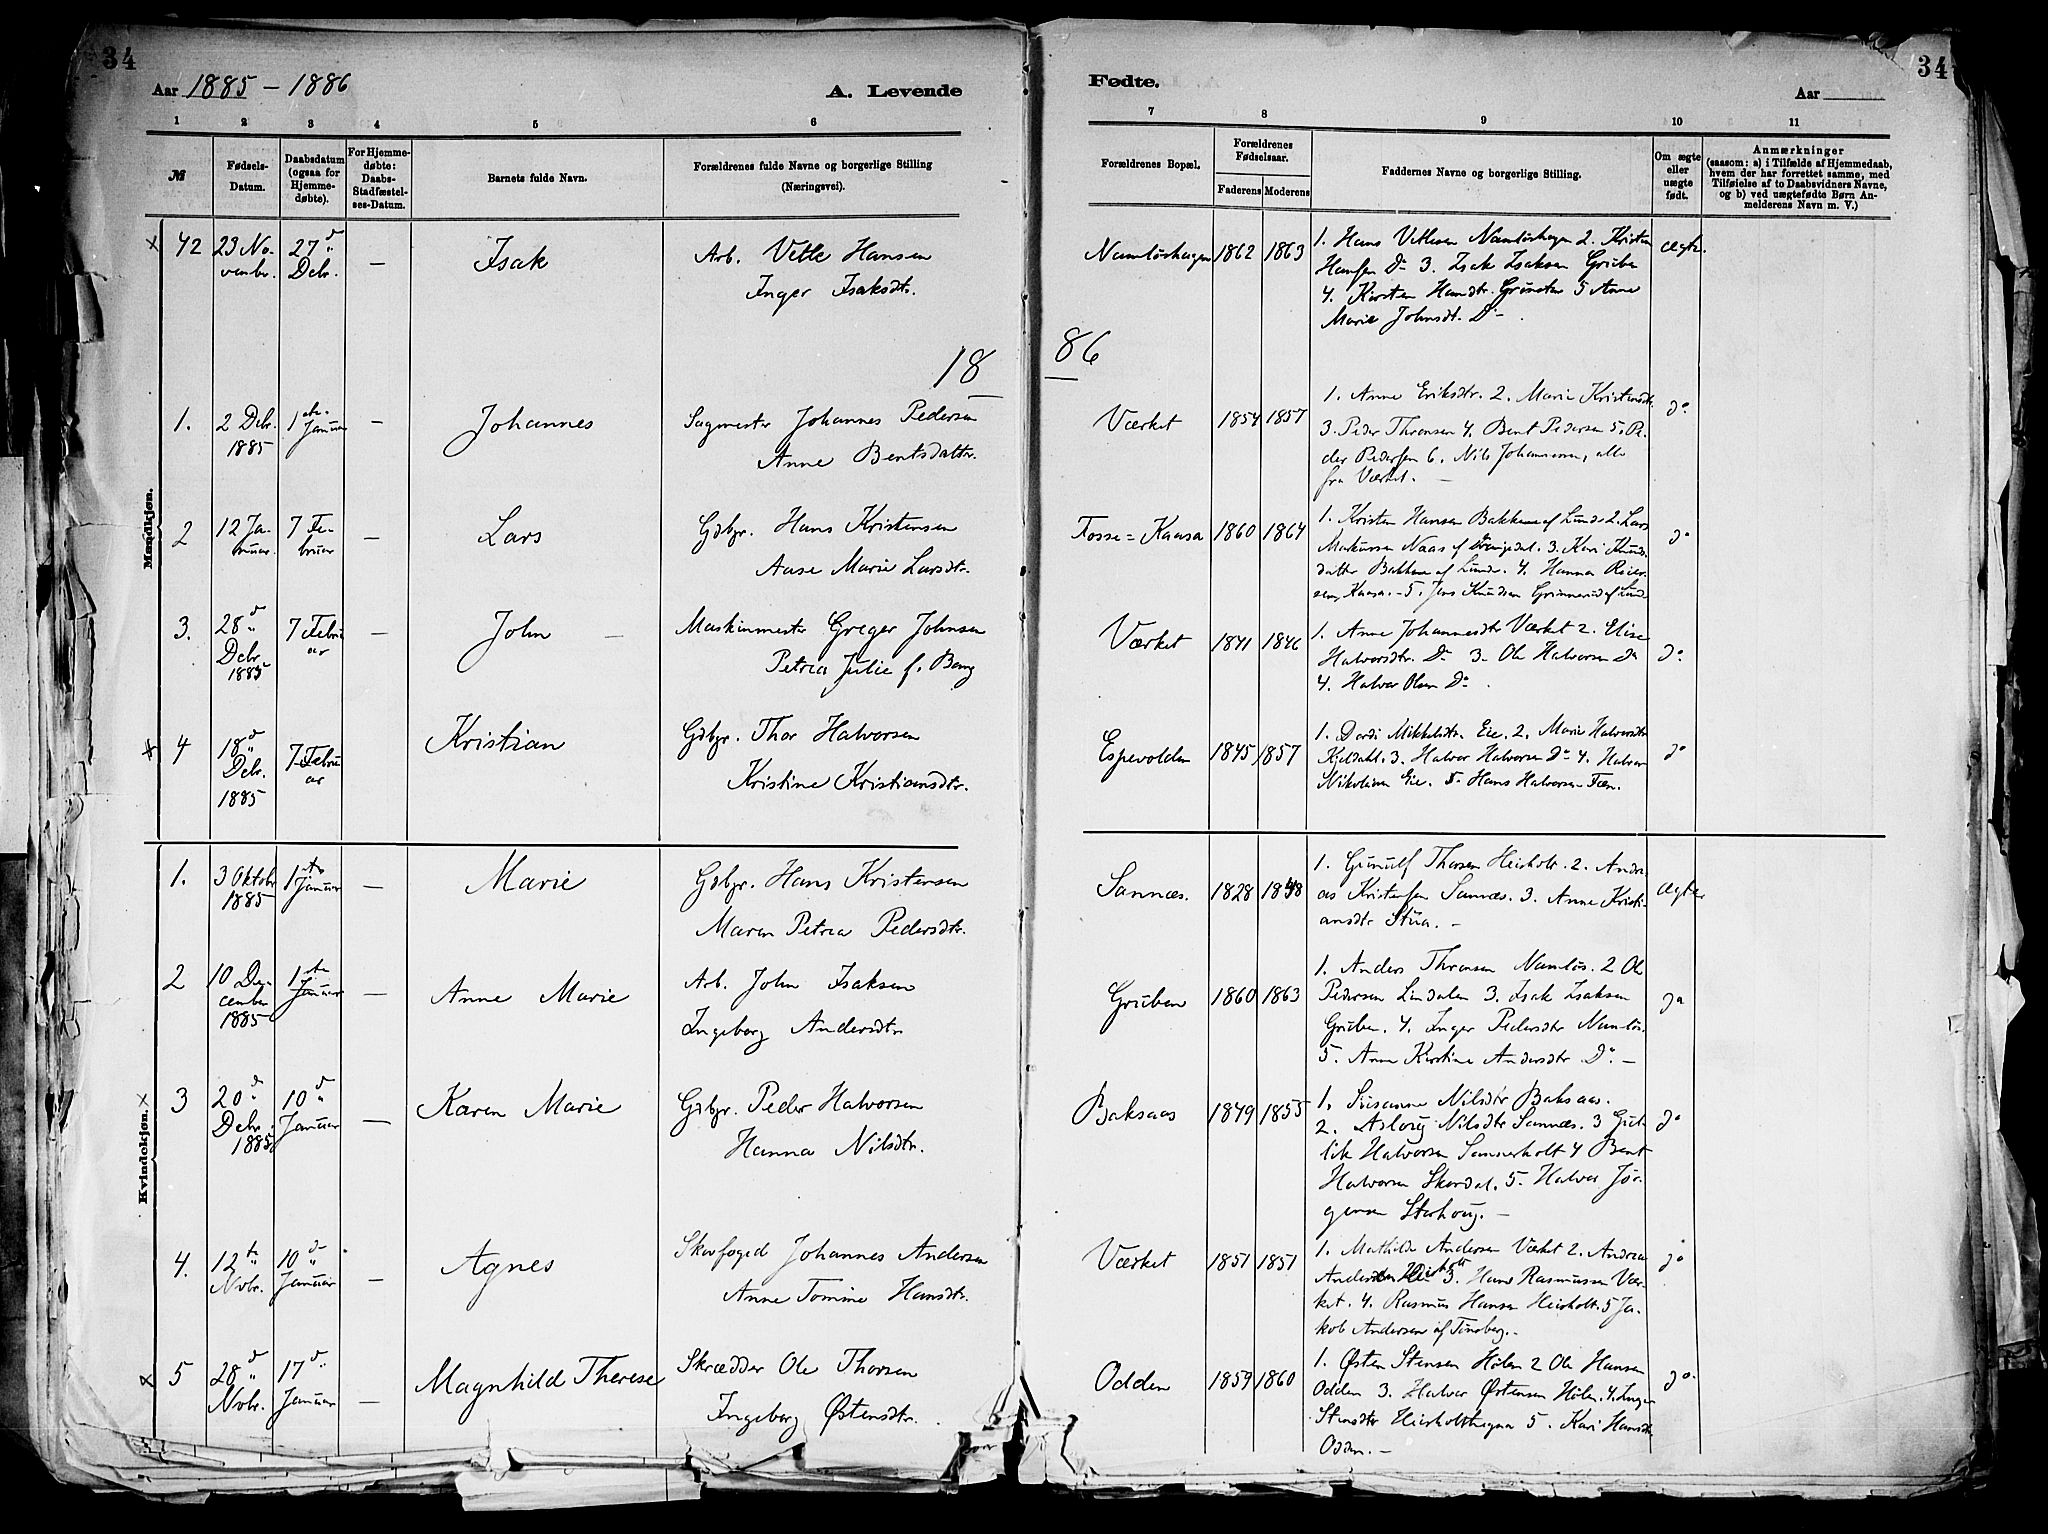 34
Aar 1885 - 1886
A. Levende
1 2 3 4 5 6
№
Fødsels-Datum.
Daabsdatum (ogsaa for Hjemmedøbte).
For Hjemmedøbte: Daabs-Stadfæstelses-Datum.
Barnets fulde Navn.
Forældrenes fulde Navne og borgerlige Stilling
(Næringsvei).
Fødte.
Aar
34
7 8 9 10 11
Forældrenes Bopæl.
Forældrenes Fødselsaar.
Faderens Moderens
Faddernes Navne og borgerlige Stilling.
Om ægte eller uægte født.
Anmærkninger
(saasom: a) i Tilfælde af Hjemmedaab,
hvem der har forrettet samme, med
Tilføielse af to Daabsvidners Navne,
og b) ved uægtefødte Børn An-
melderens Navn m. V.)
Mandkjøn.
× 42
23 No-
vember.
27 d
Debr.
—
Isak
Arb. Vetle Hansen
Inger Isaksdtr.
Namløshagen 1862 1863
1. Hans Vetlesen Namløshagen 2. Kristen
Hansen Do 3. Isak Isaksen Gruben
4. Kirsten Hansdtr. 5 Anne
Marie Johnsdt. Do - .
Ægte.
18
86
1.
2 Debr.
1885
1ste
Januar
—
Johannes
Sagmester Johannes Pedersen
Anne Bentsdattr.
Værket 1854 1857
1. Anne Eriksdtr. 2. Marie Kristensdtr.
3. Peder Thronsen 4. Bent Pedersen 5. Pe-
der Pedersen 6. Nils Johannesen, alle
fra Værket. —
do
2
12 Ja-
nuar.
7 Fe-
bruar
—
Lars
Gdbgr. Hans Kristensen
Aase Marie Larsdtr.
Fosse=Kaasa 1860 1864
1. Kristen Hansen Bakkene af Lunde 2. Lars
Markussen Naas af Drangedal. 3. Kari Knuds-
datter Bakkene af Lunde. 4. Hanna Reier-
Kaasa. - 5. Jens Knudsen Grimmerud af Lunde
do
3.
28 d
Debr.
1885
7 Febru
ar
—
John —
Maskinmester Greger Johnsen
Petrea Julie f. Bang
Værket 1841 1846
1. Anne Johannesdtr Værket 2. Elise
Halvorsdtr. Do 3. Ole Halvorsen Do
4. Halvor Olsen Do .
do
× 4
18 d
Debr.
1885
7 Febru
ar
Kristian
Gdbgr. Thor Halvorsen
Kristine Kristiansdtr.
Espevolden 1845 1857
1. Dordi Mikkelsdtr. Eie. 2. Marie Halvorsdtr
Kjeldahl. 3. Halvor Halvorsen Do 4. Halvor
Nikolaisen Eie. 5. Hans Halvorsen Fæn.
do
Kvindekjøn.
1.
3 Oktobr
1885
1ste
Januar
—
Marie
Gdbgr. Hans Kristensen
Maren Petrea Pedersdtr.
Sannæs. 1828 1848
1. Gunulf Thorsen Heisholt. 2. Andre-
as Kristensen Sannæs. 3. Anne Kristi-
ansdtr Stua. -
Ægte
2
10 De-
cember
1885
1ste
Januar
—
Anne Marie
Arb. John Isaksen
Ingeborg Andersdtr.
Gruben 1860 1863
1. Anders Thronsen Namløs. 2 Ole
Pedersen Lindalen 3. Isak Isaksen
Gruben. 4. Inger Pedersdtr Namløs.
5. Anne Kirstine Andersdtr Do. —
do
× 3
20 de
Debr.
1885
10 d
Januar
—
Karen Marie
Gdbgr. Peder Halvorsen
Hanna Nilsdtr.
Baksaas 1849 1855
1. Susanne Nilsdtr Baksaas.
2. Aslaug Nilsdtr Sannæs. 3 Gut-
lik Halvorsen Sannerholt 4 Bent
Halvorsen Skardal. 5. Halvor Jør-
gensen Starhoug. —
do
4.
12te
Novbr.
10 d
Januar
—
Agnes
Skovfoged Johannes Andersen
Anne Tomine Hansdtr.
Værket 1851 1851
1. Mathilde Andersen Værket 2. Andrea
Andersen Heisholt 3. Hans Rasmussen Vær-
ket. 4. Rasmus Hansen Heisholt. 5 Ja-
kob Andersen af Tønsberg. -
do
× 5
28 d
Novbr.
17 d
Januar
—
Magnhild Therese
Skrædder Ole Thorsen
Ingeborg Østensdtr.
Odden 1859 1860
1. Østen Stensen Hølen 2 Ole Hansen
Odden 3. Halvor Østensen Hølen. 4. Inger
Stensdtr Heisholthagen 5. Kari Hansdtr
Odden. —
do